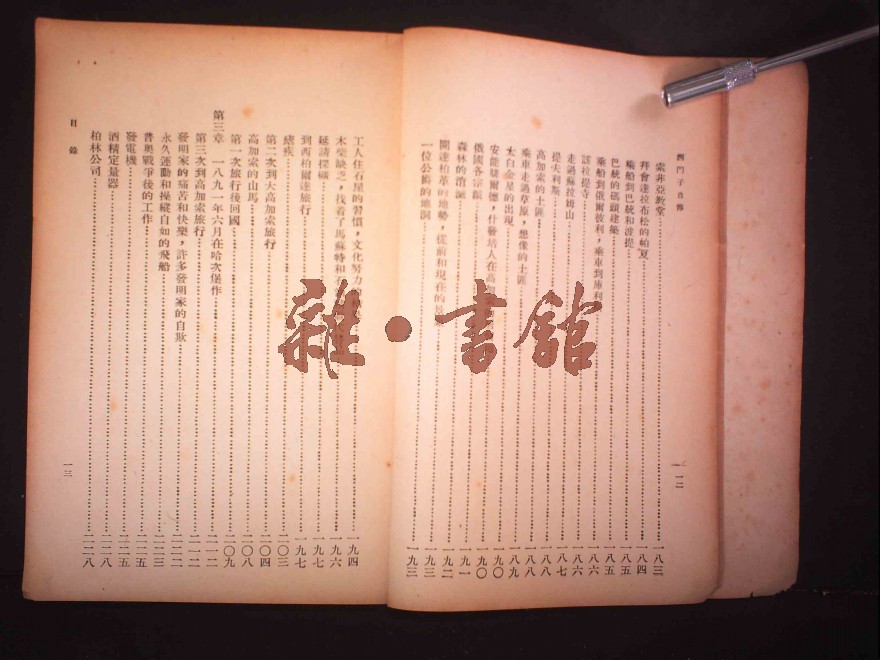 西門子自傳
一二
索非亞教堂……一八三
拜會達拉布松的帕夏……一八四
乘船到巴統和波提……一八五
巴統的碼頭建築……一八五
乘船到俄爾彼利，乘車到庫利……一八六
該拉提寺……一八六
走過蘇拉姆山……一八七
提夫利斯……一八八
高加索的土匪……一八八
乘車走過草原，想像的土匪……一八九
太白金星的出現……一九〇
安能 爾德，什發培人在高……一九〇
俄國各宗派……一九一
森林的消滅……一九二
開達柏革的地勢，從前和現在的……一九三
一位公爵的地洞……一九三
工人住石屋的習慣，文化努力……一九四
木柴缺乏，找着了馬蘇特和石……一九六
延請探礦……一九七
到西柏爾達旅行……一九七
瘧疾……二〇三
第二次到大高加索旅行……二〇四
高加索的山馬……二〇八
第一次旅行後回國……二〇九
第三章　一八九一年六月在哈次堡作……二一二
第三次到高加索旅行……二一二
發明家的痛苦和快樂，許多發明家的自欺……二二二
永久運動和操縱自如的飛船……二二三
普奧戰爭後的工作……二二五
發電機……二二五
酒精定量器……二二八
柏林公司……二二八
目錄
一三
雜·書館